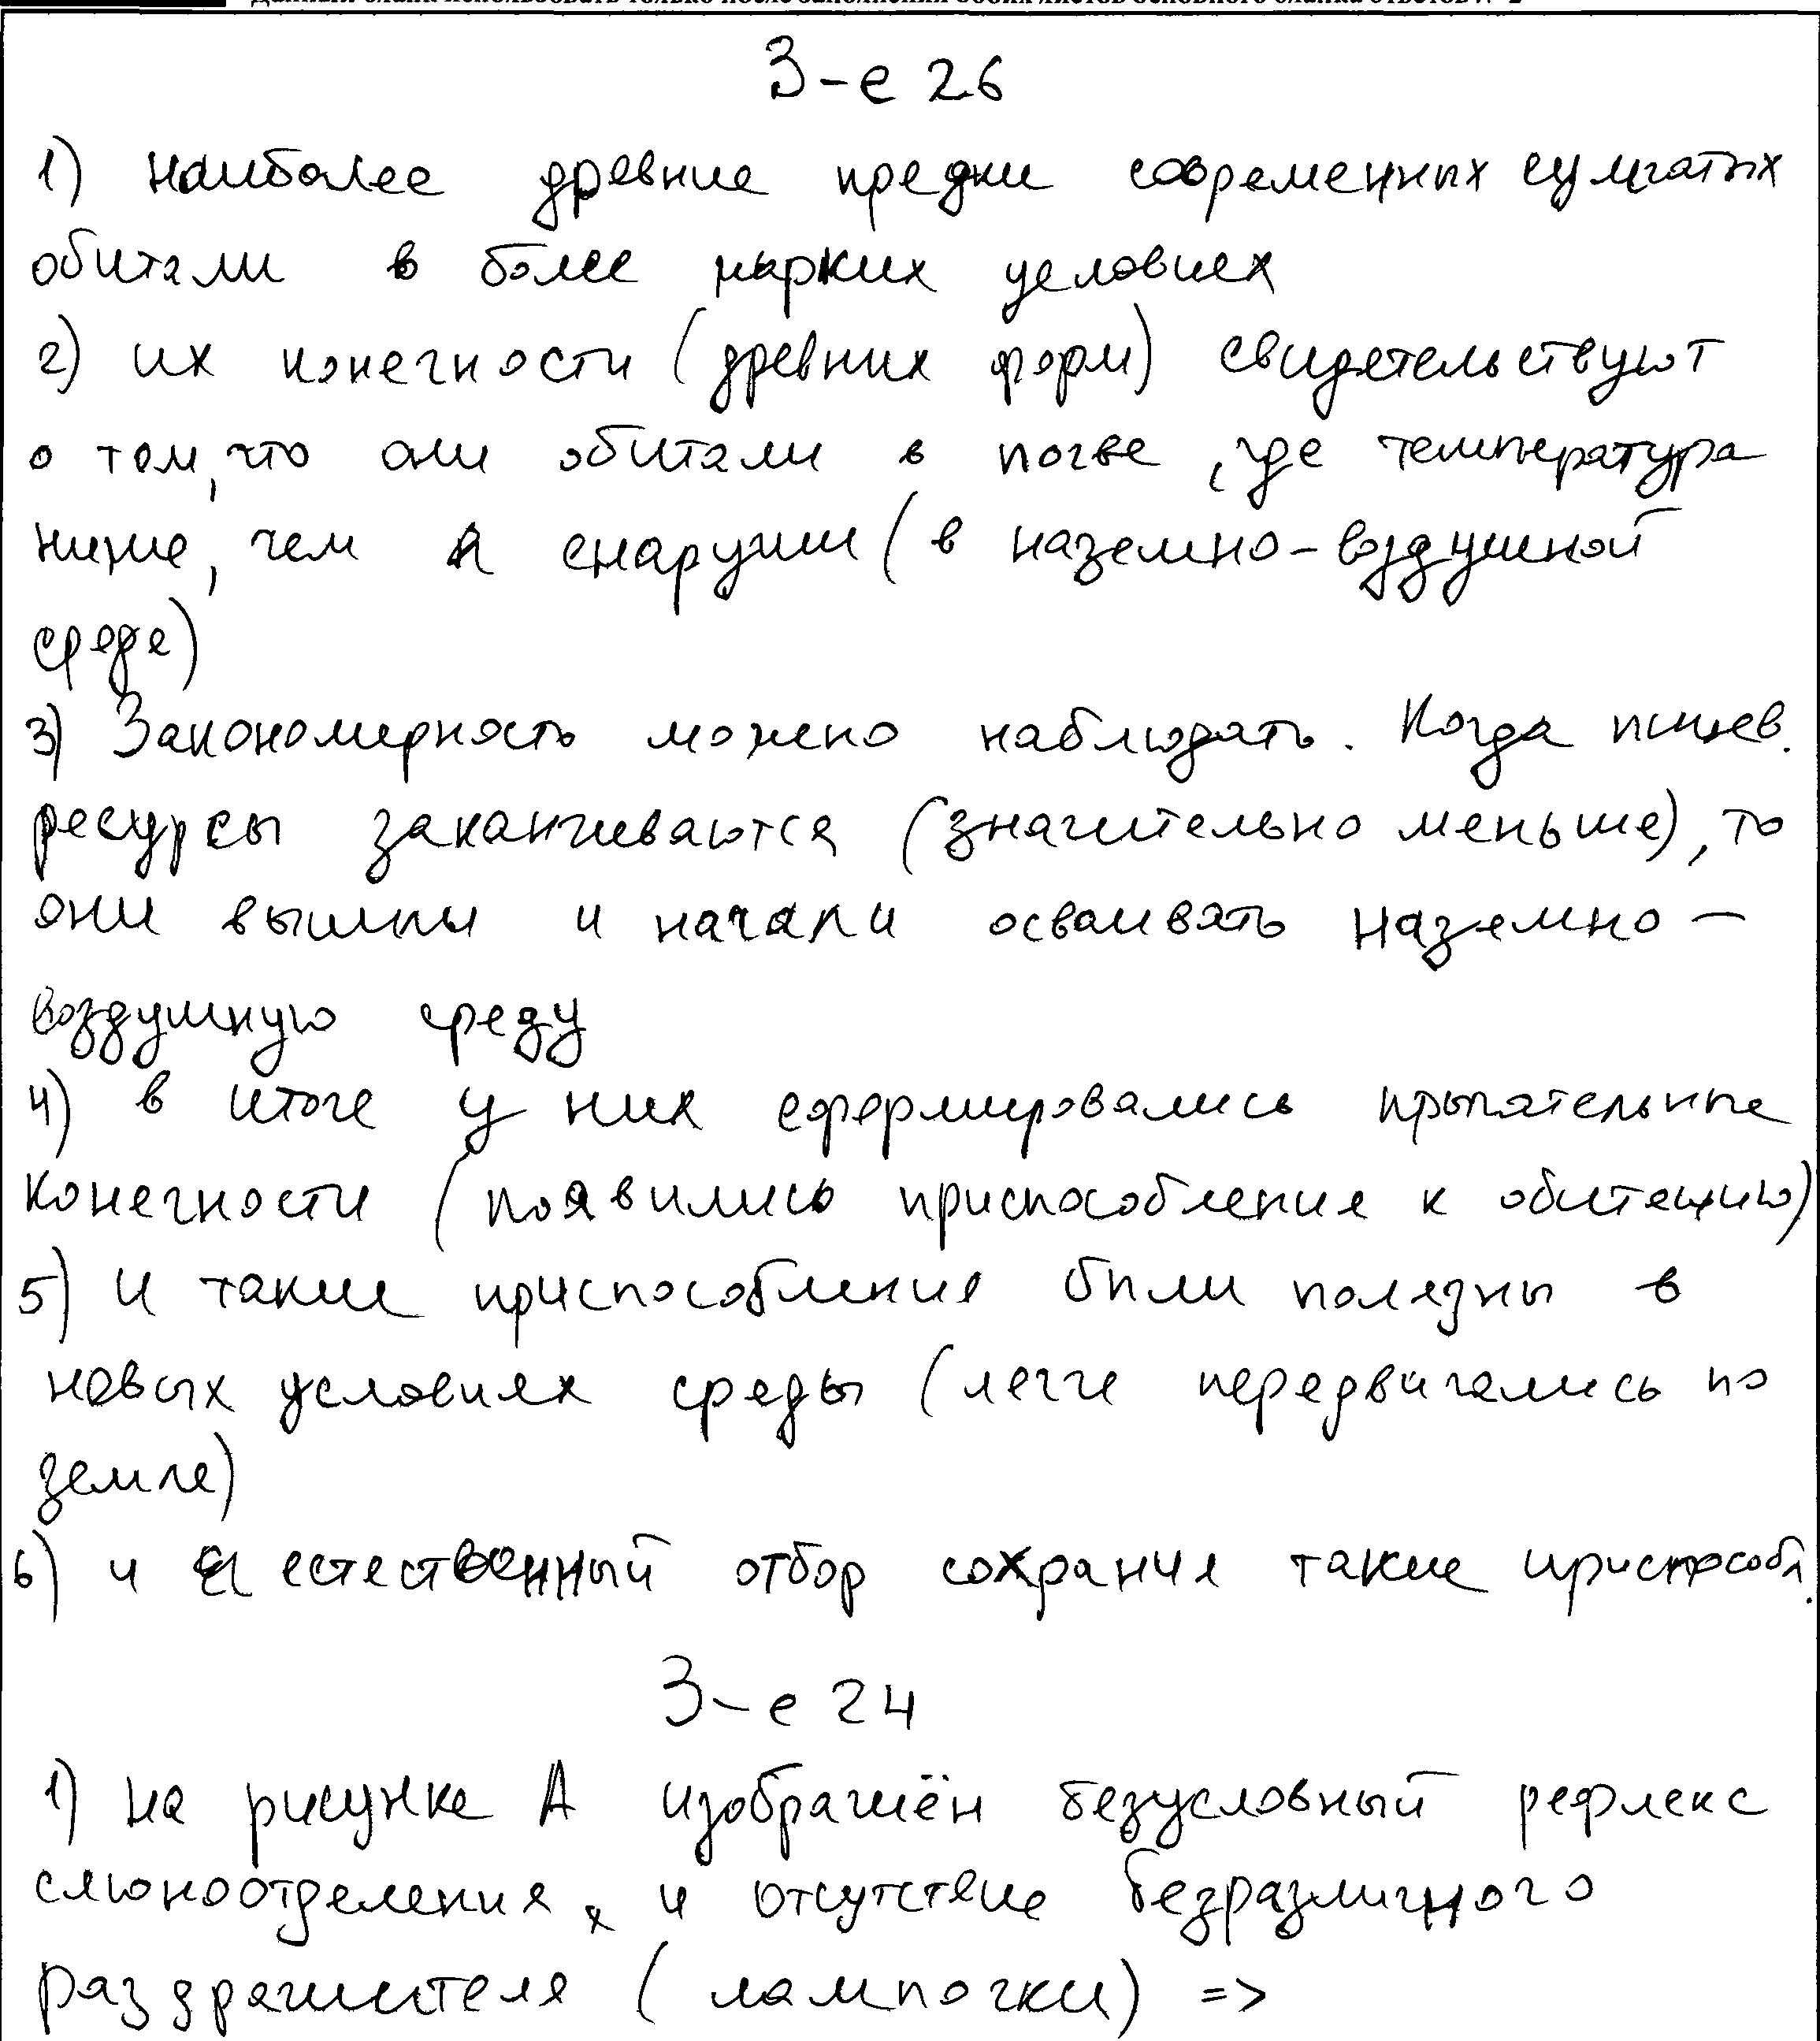 З-е 26
1) наиболее древние предки современных сумчатых
обитали в более жарких условиях
2) их конечности (древних форм) свидетельствуют
о том, что они обитали в почве, где температура
ниже, чем снаружи (в наземно-воздушной
среде)
3) Закономерность можно наблюдать. Когда пищев.
ресурсы заканчиваются (значительно меньше), то
они вышли и начали осваивать наземно-
воздушную среду
4) в итоге у них сформировались прыгательные
конечности (появились приспособления к обитанию)
5) и такие приспособления были полезны в
новых условиях среды (легче передвигались по
земле)
6) и естественный отбор сохранил такие приспособл.
З-е 24
1) на рисунке А изображён безусловный рефлекс
слюноотделения, и отсутствие безразличного
раздражителя (лампочки) =>